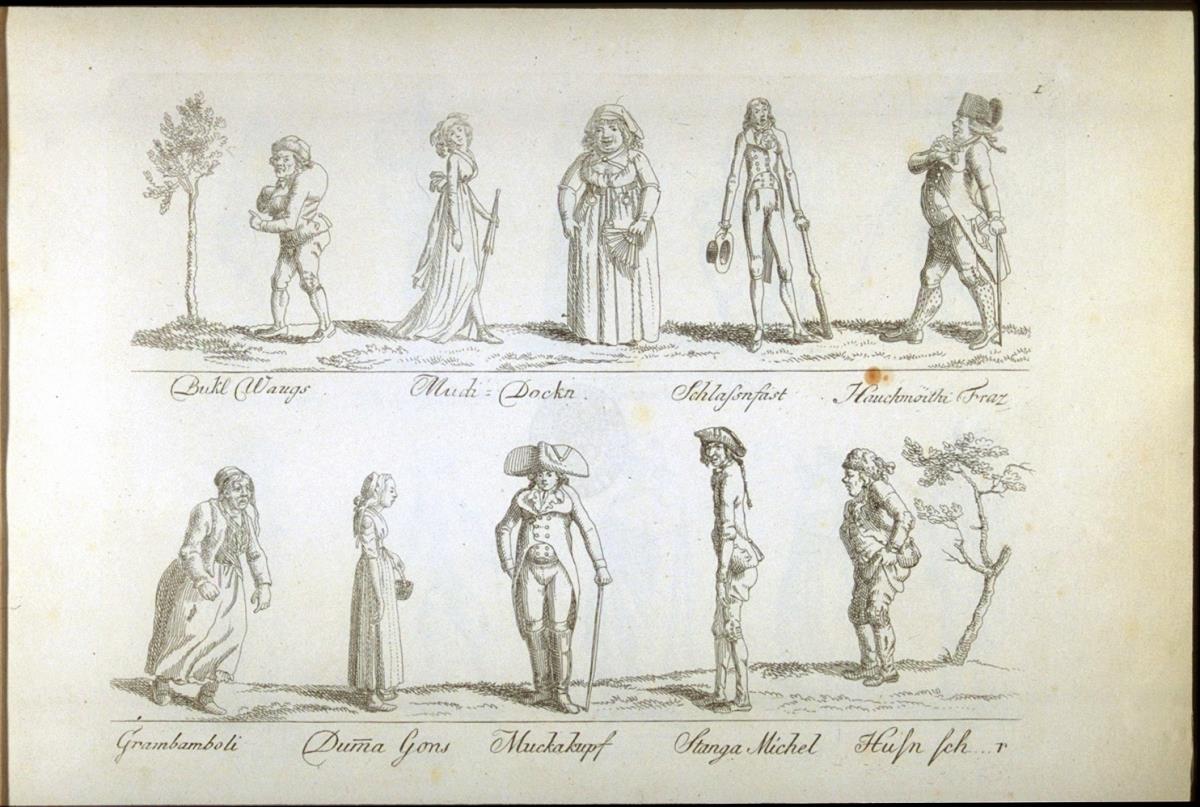 1
Bukl Waugs. Mudi = Dockn. Schlaſsnfast. Hauchmöithi Fraz
Grambamboli Dum̄a Gons Muckakupf Stanga Michel Hüſn ſch....r